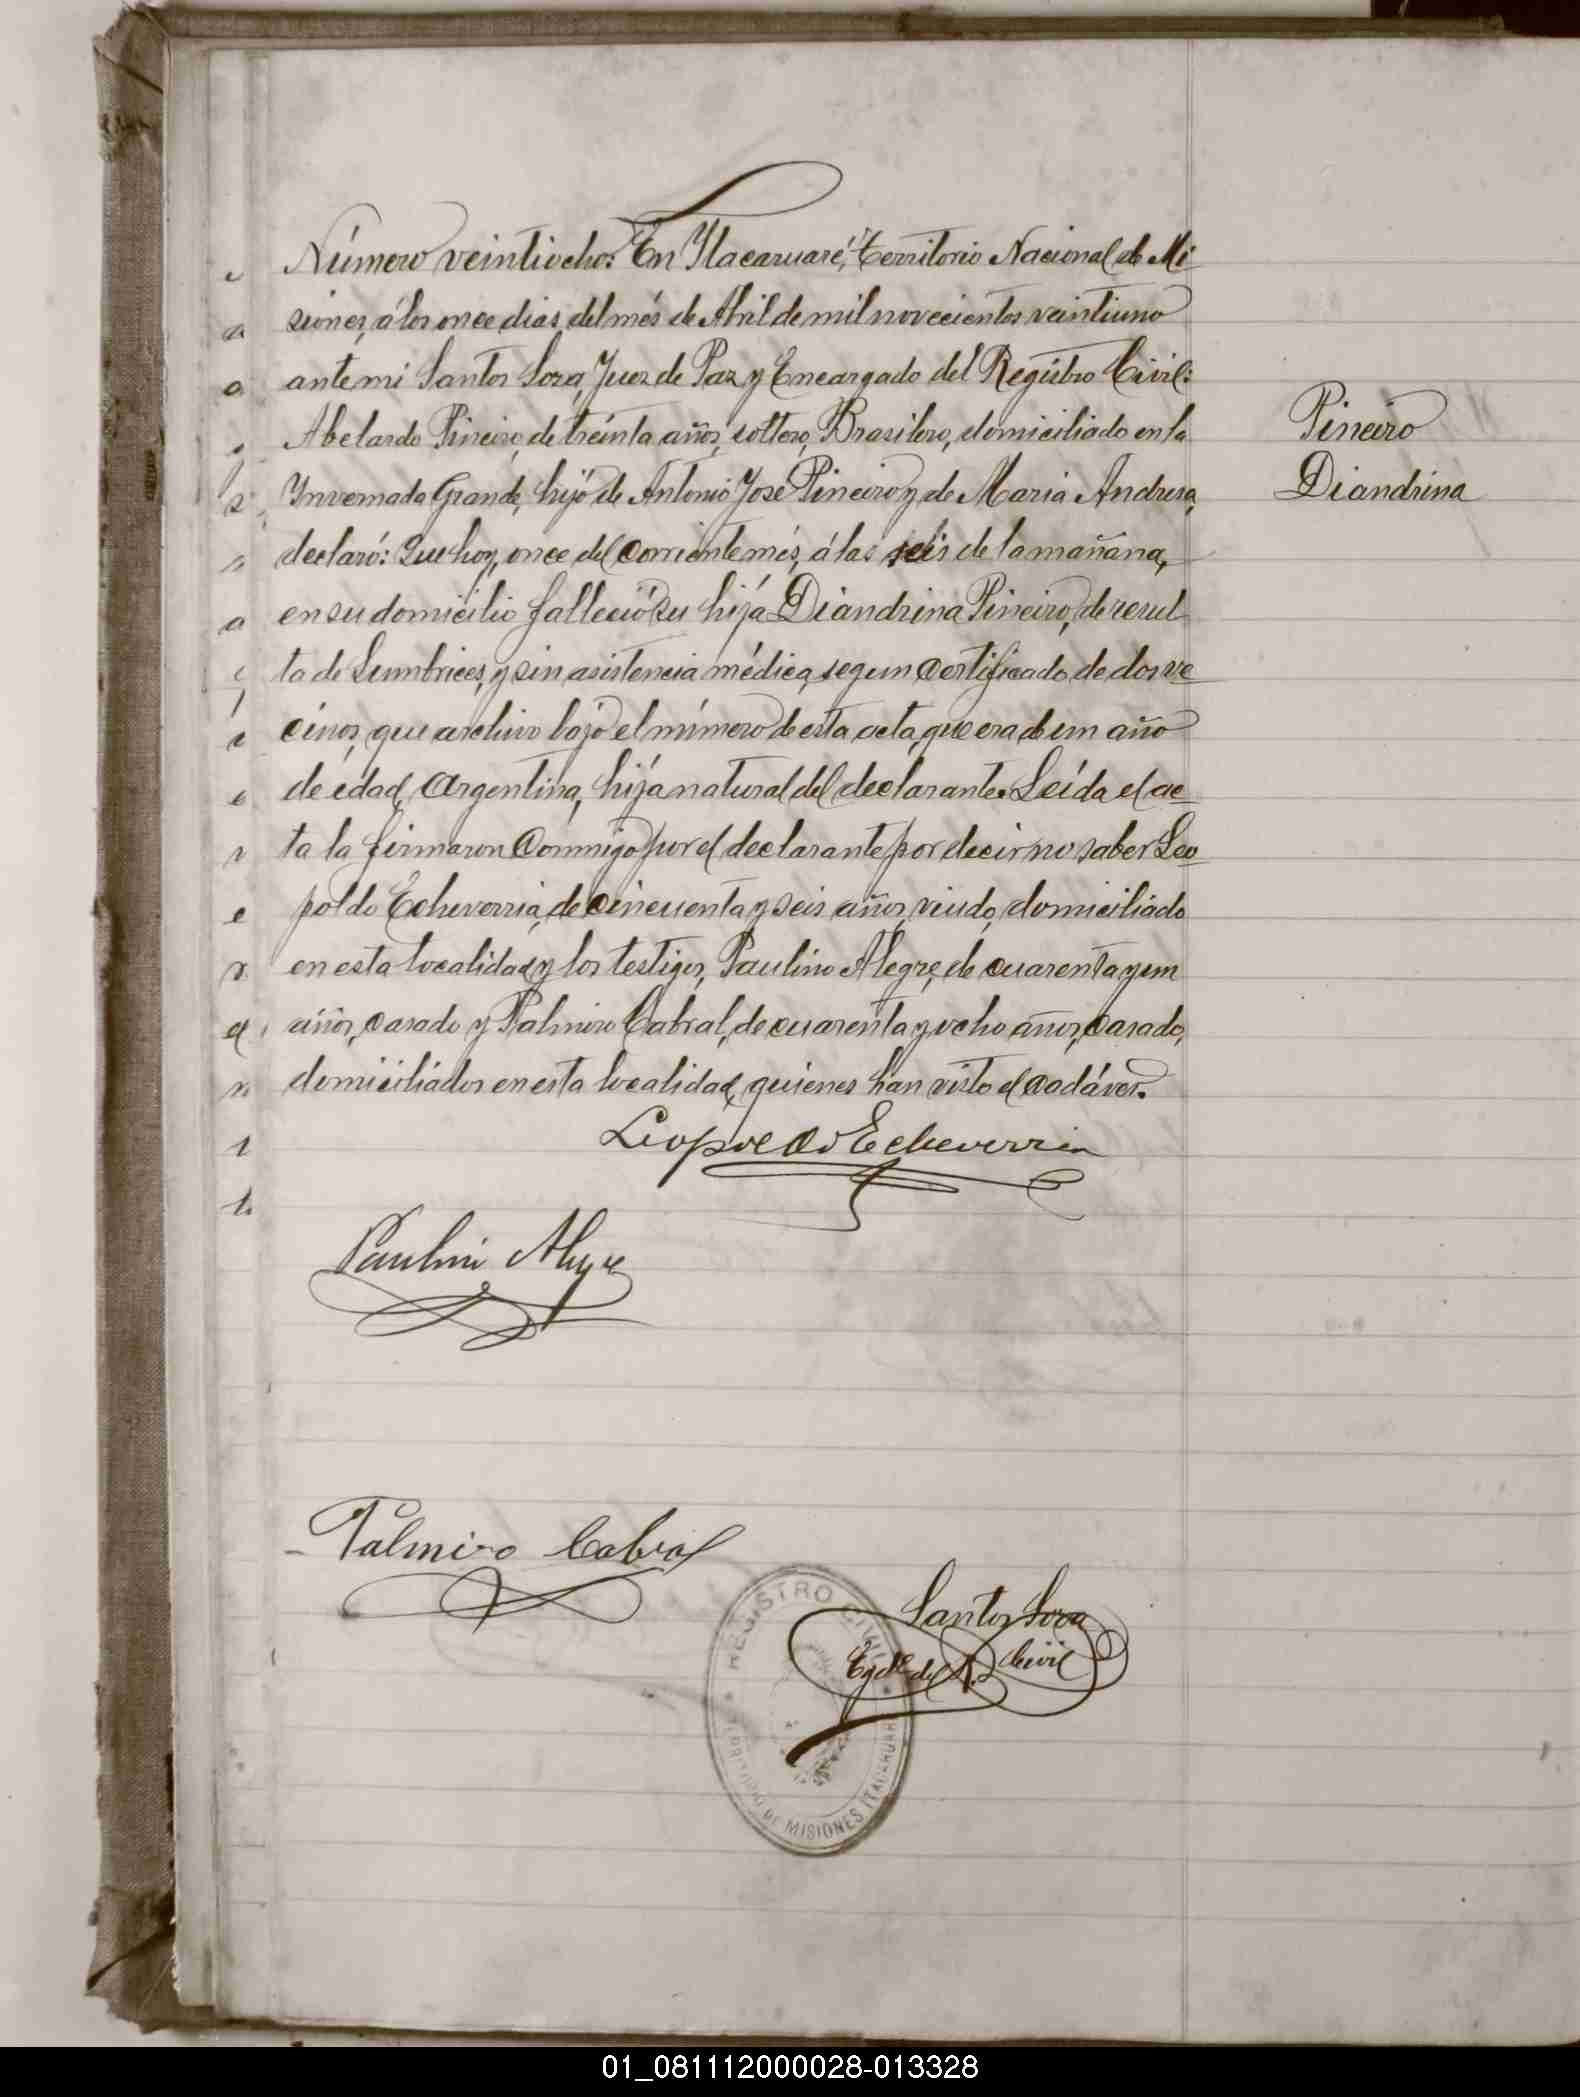 Número veintiocho: En Ytacaruaré, Territorio Nacional de Mi
siones, á los once dias del més de Abril de mil novecientos veintiuno
ante mi Santos Sosa, Juez de Paz y Encargado del Registro Civil:
Abelardo Pineiro, de treinta años, soltero, Brasilero, domiciliado en la
Ynvernada Grande, hijo de Antonio José Pineiro y de Maria Andresa,
declaró: Que hoy, once del corriente més, á las seis de la mañana,
en su domicilio falleció su hija Diandrina Pineiro, de resul
ta de Lumbrices, y sin asistencia médica, segun certificado de dos ve
cinos, que archivo bajo el número de esta acta, que era de un año
de edad, Argentina, hija natural del declarante. Leída el ac
ta la firmaron conmigo por el declarante por decir no saber Leo
poldo Echeverria, de cincuenta y seis años, viudo, domiciliado
en esta localidad y los testigos, Paulino Alegre, de cuarenta y un
años, casado y Palmiro Cabral, de cuarenta y ocho años, casado,
domiciliados en esta localidad, quienes han visto el cadáver.
Pineiro
Diandrina
Leopoldo Echeverria
Paulino Alegre
Palmiro Cabral
Santos Sosa
Egdo del R. Civil
REGISTRO CIVIL
TERRITORIO DE MISIONES ITACARUARÉ
01_081112000028-013328